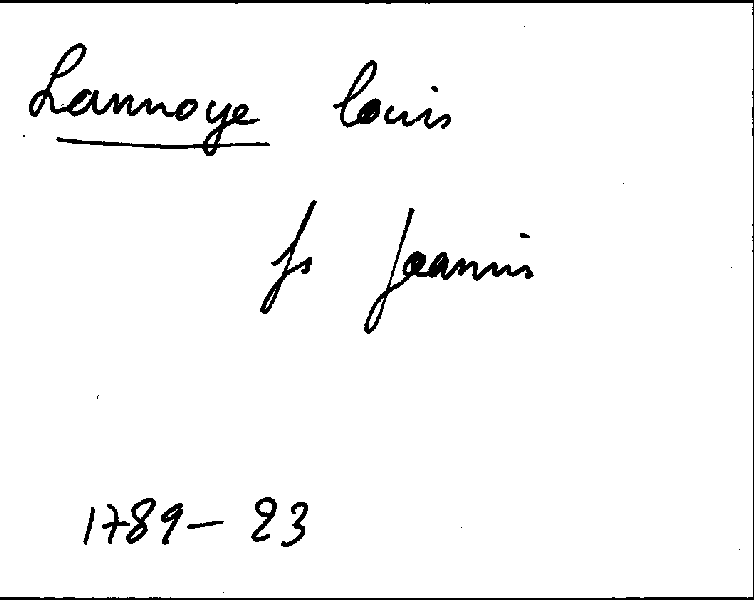 Lannoye Louis
fs Joannis
1789 - 23